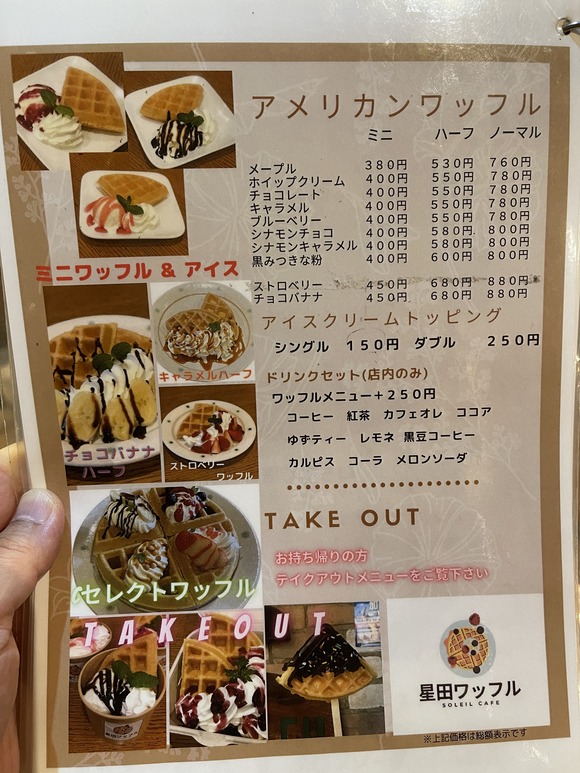 アメリカンワッフル
ミニ ハーフ ノーマル
メープル 380円 530円 760円
ホイップクリーム 400円 550円 780円
チョコレート 400円 550円 780円
キャラメル 400円 550円 780円
ブルーベリー 400円 550円 780円
シナモンチョコ 400円 580円 800円
シナモンキャラメル 400円 580円 800円
黒みつきな粉 400円 600円 800円
ストロベリー 450円 680円 880円
チョコバナナ 450円 680円 880円
ミニワッフル & アイス
アイスクリームトッピング
シングル 150円 ダブル 250円
ドリンクセット(店内のみ)
ワッフルメニュー+250円
コーヒー 紅茶 カフェオレ ココア
ゆずティー レモネ 黒豆コーヒー
カルピス コーラ メロンソーダ
キャラメルハーフ
チョコバナナ
ハーフ
ストロベリー
ワッフル
TAKE OUT
お持ち帰りの方
テイクアウトメニューをご覧下さい
セレクトワッフル
TAKEOUT
星田ワッフル
SOLEIL CAFE
※上記価格は総額表示です